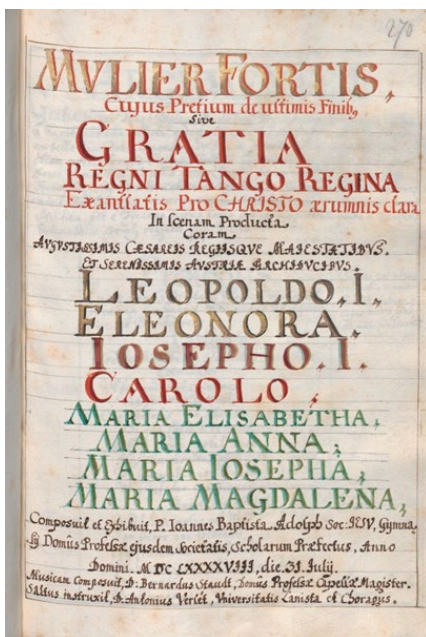 270
MVLIER FORTIS,
Cujus Pretium de ultimis Finibꝫ
Sive
GRATIA
REGNI TANGO REGINA
Exantlatis Pro CHRISTO ærumnis clara
In Scenam Producta
Coram
AVGVSTISSIMIS CÆSAREIS REGIISQVE MAIESTATIBVS.
ET SERENISSIMIS AVSTRIÆ ARCHIDVCIBVS.
LEOPOLDO. I.
ELEONORA.
IOSEPHO. I.
CAROLO,
MARIA ELISABETHA,
MARIA ANNA,
MARIA IOSEPHA,
MARIA MAGDALENA,
Composuit et Exhibuit, P. Ioannes Baptista Adolph Soc: IESV, Gymna.
Domûs Professæ ejusdem Societatis, Scholarum Præfectus, Anno
Domini. M DC LXXXXVIII, die. 31. Iulij.
Musicam Composuit, D: Bernardus Staudt, Domûs Professæ Capellæ Magister.
Saltus instruxit, D: Antonius Verlet, Vniversitatis Lanista et Choragus.